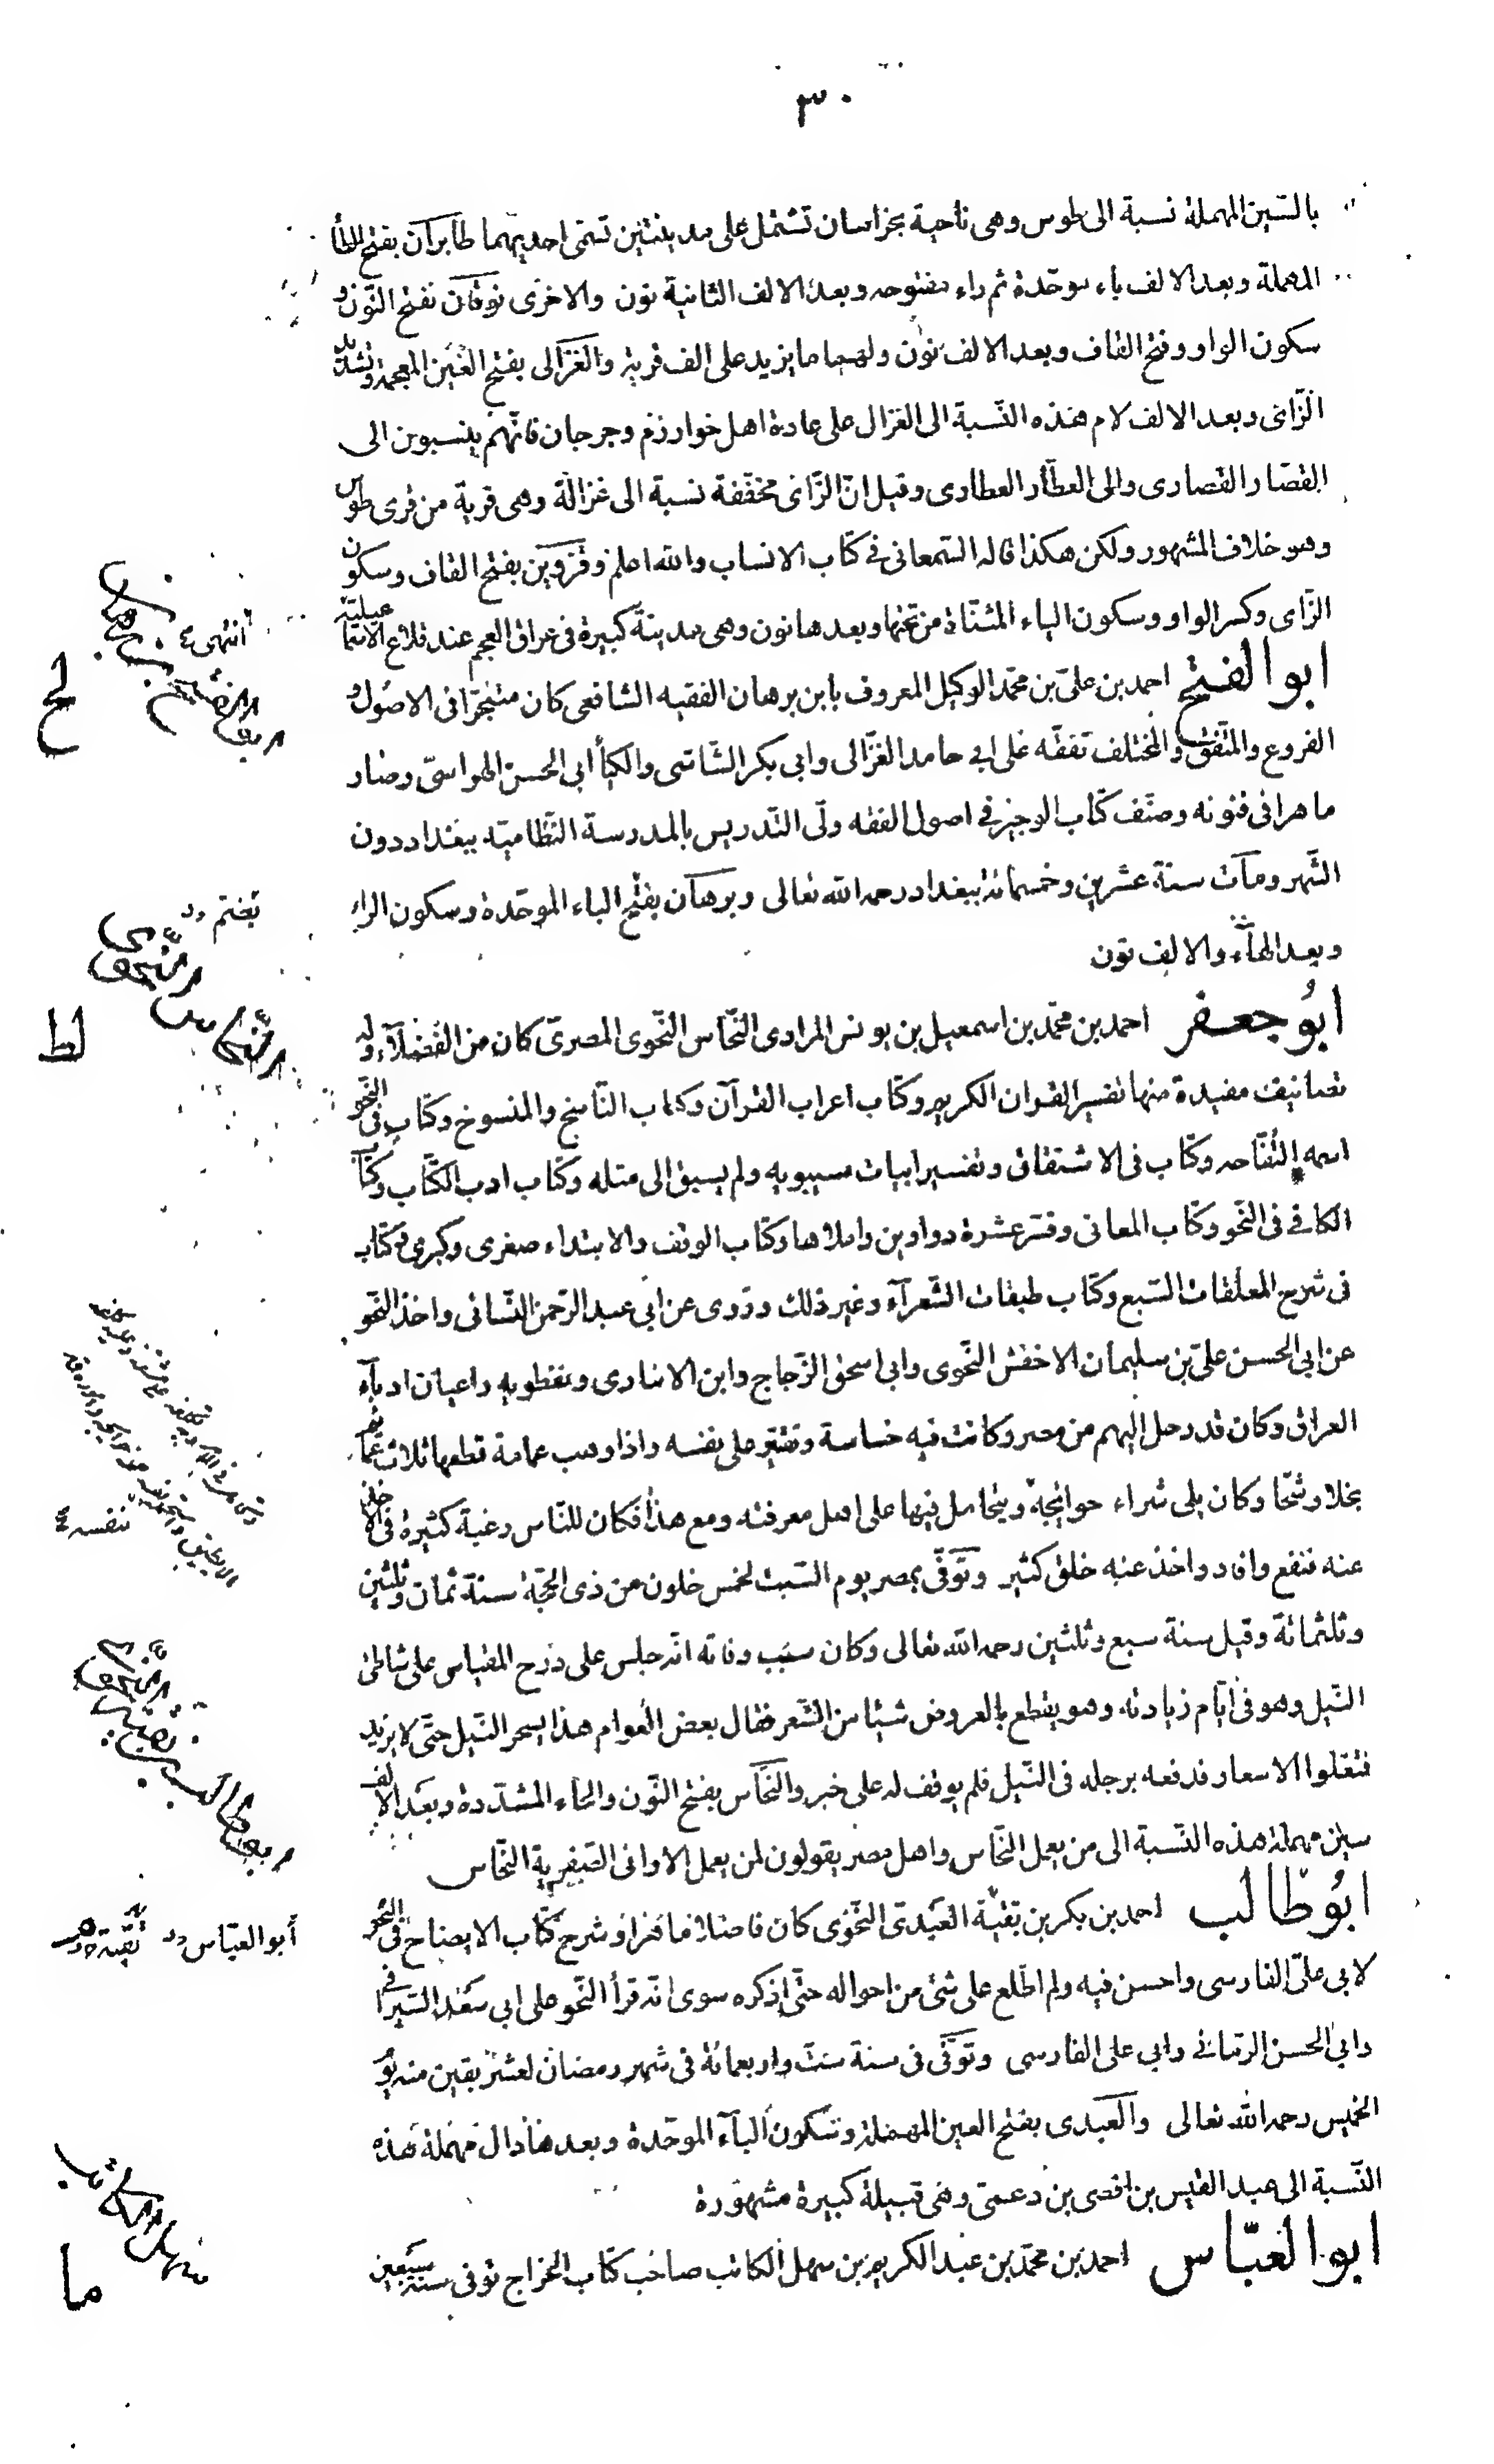 ٣٠
بالسّين المهملة نسبة الى طوس وهى ناحية بخراسان تشتمل على مدينتين تسمّى احديهما طابران بفتح الطأ
المهملة وبعد الالف باء موحّدة ثم راء مفتوحه وبعد الالف الثانية نون والاخرى نوقان بفتح النّون و
سكون الواو وفتح القاف وبعد الالف نون ولهما ما يزيد على الف قرية والغزّالى بفتح الغين المعجمة وتشديد
الزّاى وبعد الالف لام هذه النّسبة الى الغزال على عادة اهل خوارزم وجرجان فانّهم ينسبون الى
القصّار القصارى والى العطّار العطارى وقيل انّ الزّاى مخفّفة نسبة الى غزالة وهى قرية من قرى طوس
وهو خلاف المشهور ولكن هكذا قاله السّمعانى فى كتاب الانساب والله اعلم وقزوين بفتح القاف وسكون
الزّاى وكسر الواو وسكون الياء المثنّاة من تحتها وبعدها نون وهى مدينة كبيرة فى عراق العجم عند قلاع الاسماعيلية
انتهى
ابو الفتح احمد بن علىّ بن محمّد الوكيل المعروف بابن برهان الفقيه الشافعى كان متبحّرا فى الاصول و
لح
الفروع والمتّفق والمختلف تفقّه على ابى حامد الغزّالى وابى بكر الشّاشى والكيأ ابى الحسن الهراسىّ وصار
ماهرا فى فنونه وصنّف كتاب الوجيز فى اصول الفقه ولّى التّدريس بالمدرسة النّظاميّه ببغداد دون
الشّهر ومات سنة عشرين وخمسمائة ببغداد رحمه الله تعالى وبرهان بفتح الباء الموحّدة وسكون الراء
وبعد الهآء والالف نون
ابو جعفر احمد بن محمّد بن اسمعيل بن يونس المرادى النّحّاس النّحوى المصرىّ كان من الفضلآء وله
النّحّاس النّحوى
لط
تصانيف مفيدة منها تفسير القران الكريم وكتاب اعراب القرآن وكتاب النّاسخ والمنسوخ وكتاب فى النّحو
اسمه التّفّاحه وكتاب فى الاشتقاق وتفسير ابيات سيبويه ولم يسبق الى مثله وكتاب ادب الكتّاب وكتاب
الكافى فى النّحو وكتاب المعانى وفسّر عشرة دواوين واملاها وكتاب الوقف والابتداء صغرى وكبرى وكتاب
فى شرح المعلقات السّبع وكتاب طبقات الشّعرآء وغير ذلك وروى عن ابى عبد الرّحمن النّسائى واخذ النّحو
عن ابى الحسن علىّ بن سليمان الاخفش النّحوى وابى اسحق الزّجاج وابن الانبارى ونفطويه واعيان ادبآء
العراق وكان قد رحل اليهم من مصر وكانت فيه خساسة وتقتير على نفسه واذا وهب عمامة قطعها ثلاث عمآئم
بخلا وشحّا وكان يلى شراء حوائجه ويتحامل فيها على اهل معرفته ومع هذا فكان للنّاس رغبة كثيرة فى الاخذ
بنفسه
عنه فنفع وافاد واخذ عنه خلق كثير وتوفّى بمصر يوم السّبت لخمس خلون من ذى الحجّة سنة ثمان وثلثين
وثلثمائة وقيل سنة سبع وثلثين رحمه الله تعالى وكان سبب وفاته انّه جلس على درج المقياس على شاطئ
النّيل وهو فى ايّام زيادته وهو يقطع بالعروض شيئا من الشّعر فقال بعض العوام هذا يسحر النّيل حتّى لا يزيد
فتغلوا الاسعار فدفعه برجله فى النّيل فلم يوقف له على خبر والنّحّاس بفتح النّون والحاء المشدّدة وبعد الالف
سين مهملة هذه النّسبة الى من يعمل النّحاس واهل مصر يقولون لمن يعمل الاوانى الصّفرية النّحّاس
ابو طالب احمد بن بكر بن بقيّة العبدىّ النّحوى كان فاضلا ماهرا وشرح كتاب الايضاح فى النّحو
أبو العبّاس
بقيّة
لابى علىّ الفارسى واحسن فيه ولم اطّلع على شئ من احواله حتّى اذكره سوى انّه قرأ النّحو على ابى سعد السّيرافى
وابى الحسن الرمّانى وابى على الفارسى وتوفّى فى سنة ستّ واربعمائة فى شهر رمضان لعشر بقين منه يو
الخميس رحمه الله تعالى والعبدى بفتح العين المهملة وسكون البآء الموحّدة وبعدها دال مهملة هذه
النّسبة الى عبد القيس بن افصى بن دعمىّ وهى قبيلة كبيرة مشهورة
ابو العبّاس احمد بن محمّد بن عبد الكريم بن سهل الكاتب صاحب كتاب الخراج توفى سنة سبعين
سهل الكاتب
ما